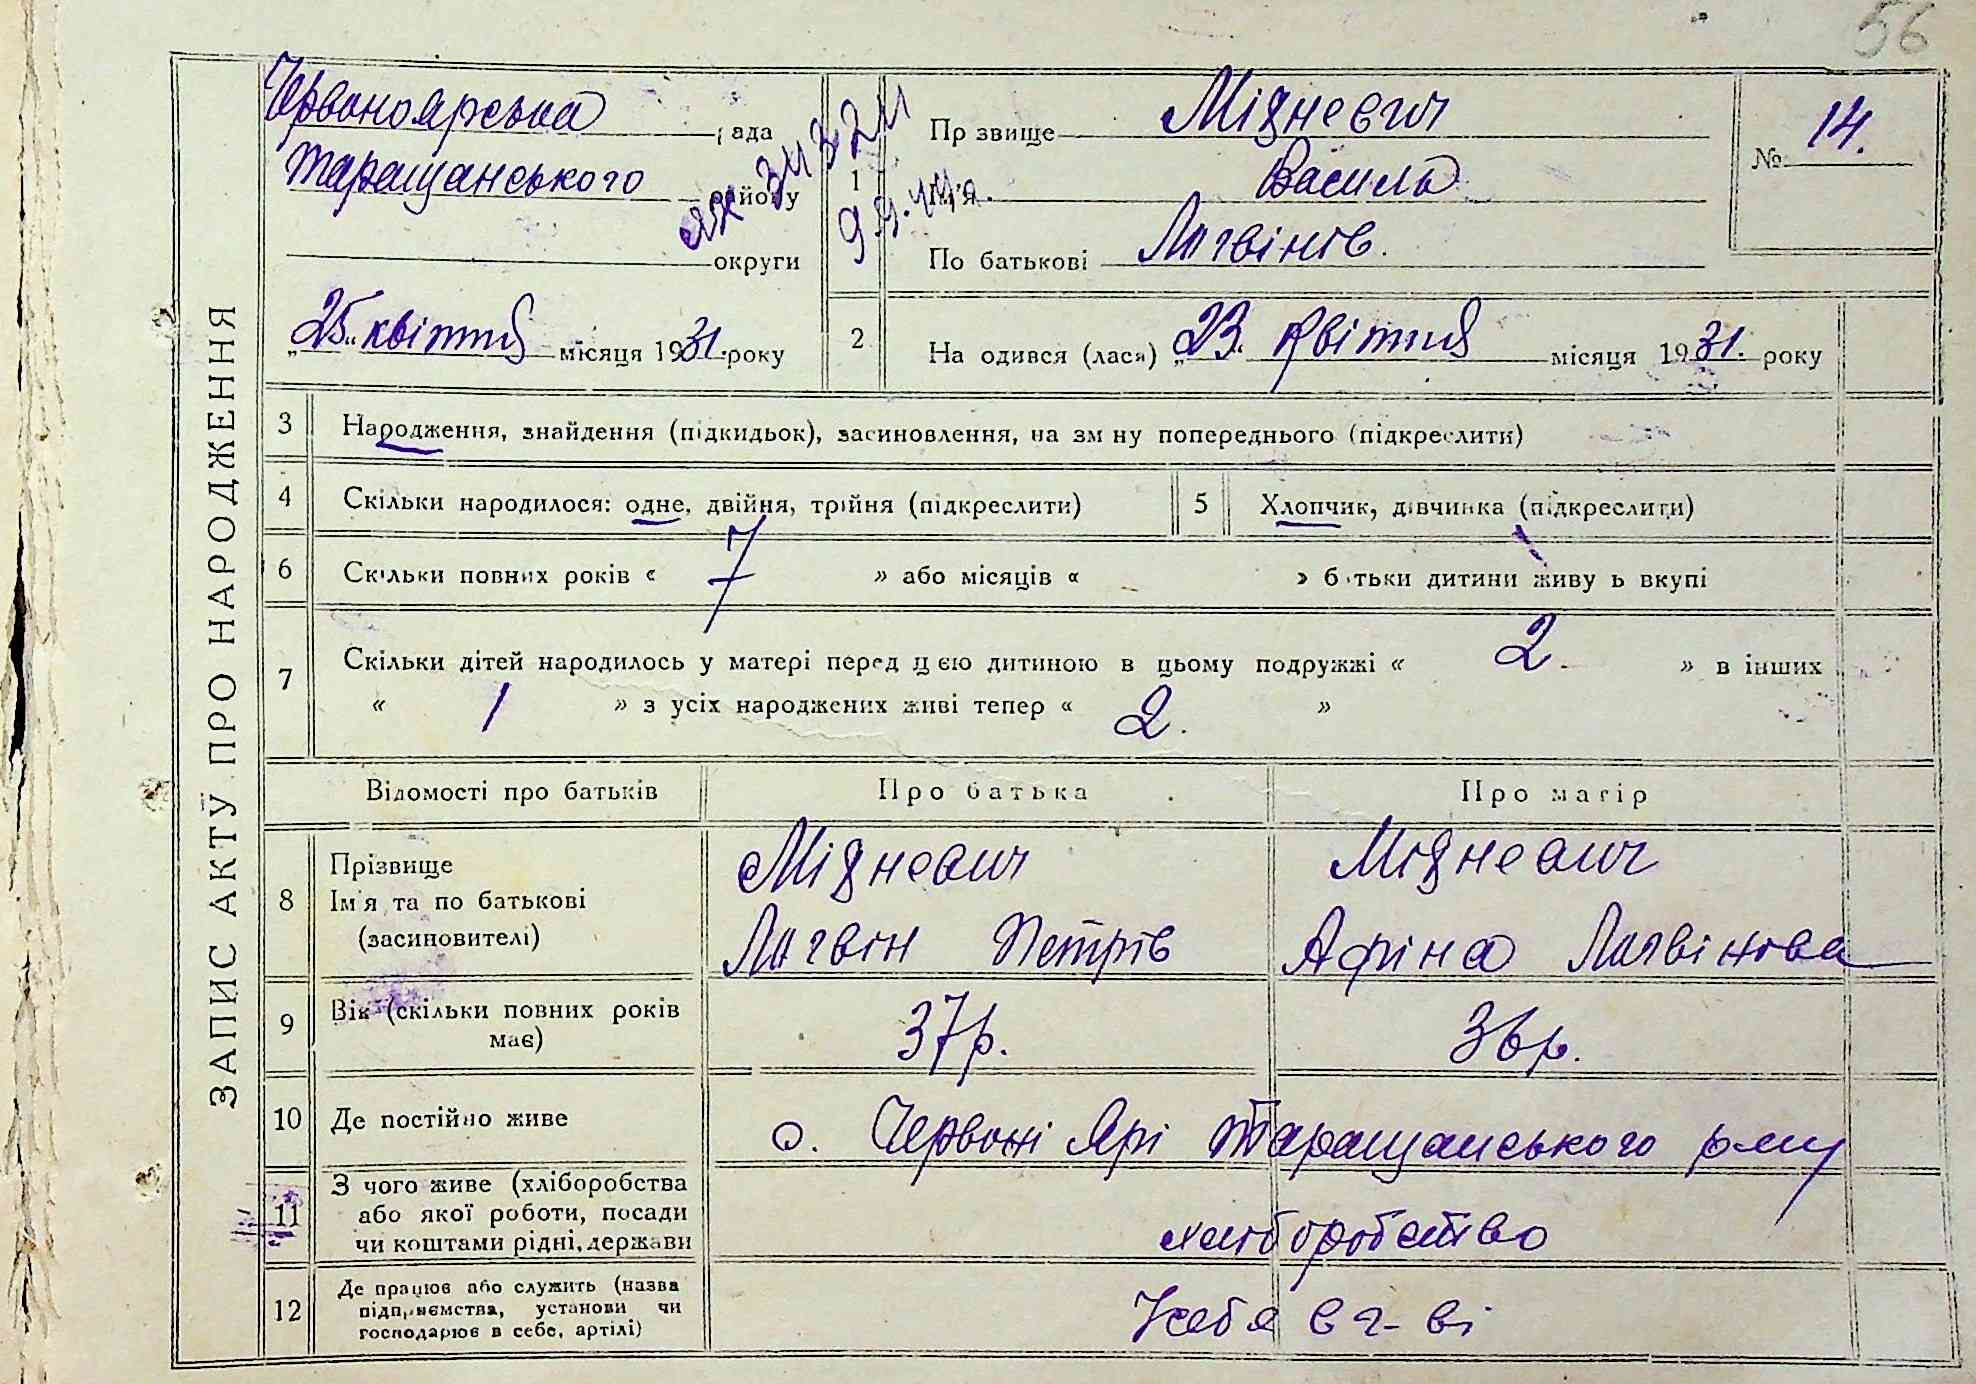 56
ЗАПИС АКТУ ПРО НАРОДЖЕННЯ
Червоноярська рада
Таращанського району
округи
„25“ квітня місяця 1931. року
1
Прізвище Мідневич
Ім'я Василь
По батькові Логвінів.
№ 14.
2
Народився (лася) „23“ квітня місяця 1931. року
3 Народження, знайдення (підкидьок), засиновлення, на зміну попереднього (підкреслити)
4 Скільки народилося: одне, двійня, трійня (підкреслити)
5 Хлопчик, дівчинка (підкреслити)
6 Скільки повних років « 7 » або місяців « » батьки дитини живуть вкупі
7 Скільки дітей народилось у матері перед цією дитиною в цьому подружжі « 2 » в інших
« 1 » з усіх народжених живі тепер « 2. »
Відомості про батьків Про батька Про матір
8 Прізвище
Ім'я та по батькові
(засиновителі)
Мідневич
Логвін Петрів
Мідневич
Афіна Логвінова
9 Вік (скільки повних років
має)
37р. 36р.
10 Де постійно живе
с. Червоні Ярі Таращанського р-ну
11 З чого живе (хліборобства
або якої роботи, посади
чи коштами рідні, держави
хліборобство
12 Де працює або служить (назва
підприємства, установи чи
господарює в себе, артілі)
У себе в г-ві